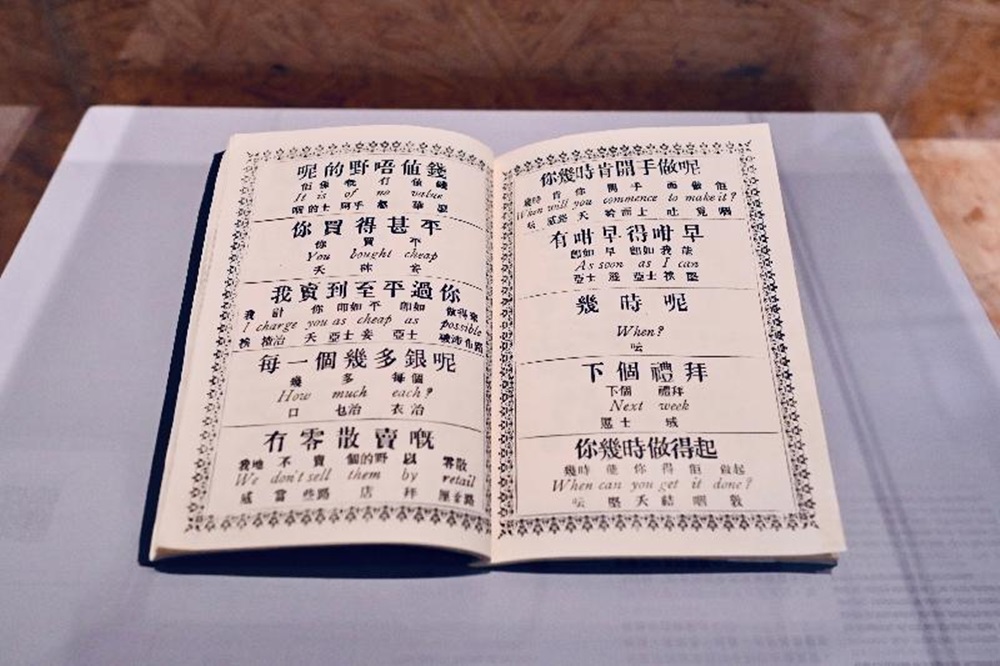 呢的野唔值錢
It is of no value
你買得甚平
你 買 平
You bought cheap
我賣到至平過你
我 計 你 即如 平 即如
I charge you as cheap as possible
每一個幾多銀呢
幾 多 每個
How much each?
口 乜治 衣治
冇零散賣嘅
我哋 不 賣 個的野 以 零散
We don't sell them by retail
威 當 些路 店 拜
你幾時肯開手做呢
幾時 肯 你 開手 而 做 佢
When will you commence to make it?
有咁早得咁早
即如 早 即如 我 能
As soon as I can
幾時呢
When?
下個禮拜
下個 禮拜
Next week
你幾時做得起
幾時 能 你 得 佢 做起
When can you get it done?